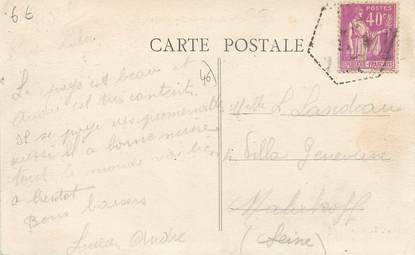 6€
CARTE POSTALE
POSTES
40c
Le pays est beau et
André est très content.
Il se paye des promenades
aussi il a bonne mine
tout le monde va bien
a bientot
Bons baisers
André
Melle L. Landeau
Villa Geneviève
Malakoff
(Seine)